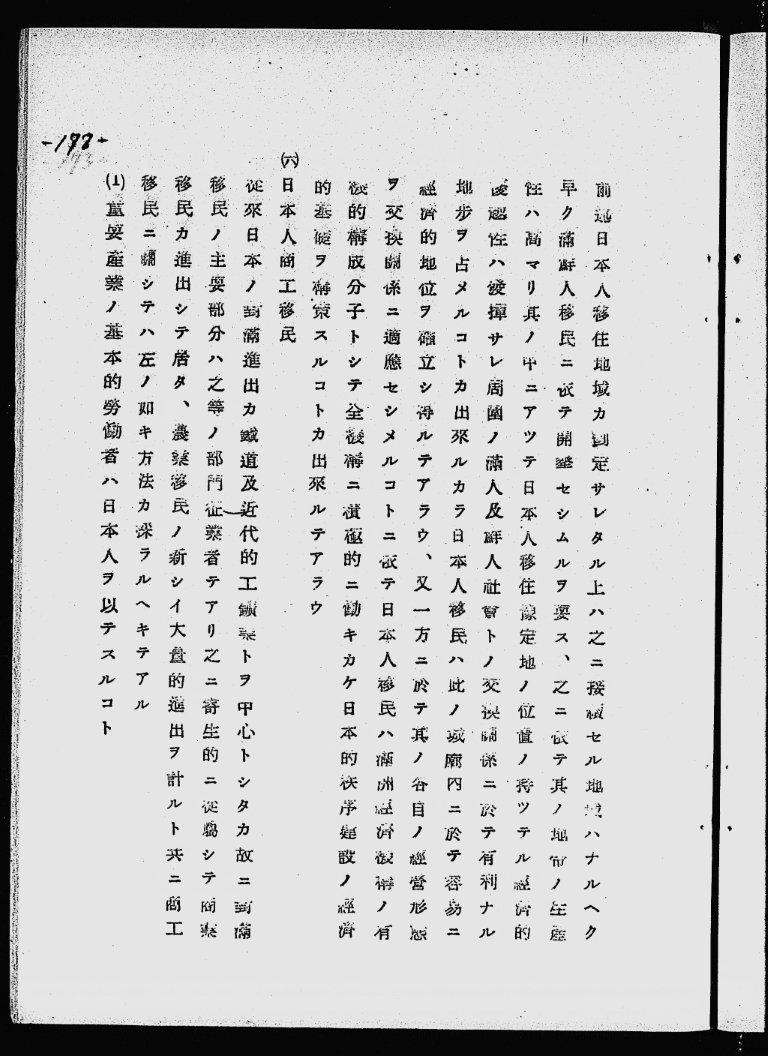 前述日本人移住地域カ劃定サレタル上ハ之ニ接續セル地域ハナルヘク
早ク滿鮮人移民ニ依テ開墾セシムルヲ要ス、之ニ依テ其ノ地帶ノ生産
性ハ高マリ其ノ中ニアツテ日本人移住豫定地ノ位置ノ持ツテル經濟的
優越性ハ發揮サレ周圍ノ滿人及鮮人社會トノ交換關係ニ於テ有利ナル
地歩ヲ占メルコトカ出來ルカラ日本人移民ハ此ノ城廓内ニ於テ容易ニ
經濟的地位ヲ確立シ得ルテアラウ、又一方ニ於テ其ノ各自ノ經營形態
ヲ交換關係ニ適應セシメルコトニ依テ日本人移民ハ滿洲經濟機構ノ有
機的構成分子トシテ全機構ニ積極的ニ働キカケ日本的秩序建設ノ經濟
的基礎ヲ構築スルコトカ出來ルテアラウ
㈥日本人商工移民
從來日本ノ對滿進出カ鐵道及近代的工鑛業トヲ中心トシタカ故ニ對滿
移民ノ主要部分ハ之等ノ部門從業者テアリ之ニ寄生的ニ從屬シテ商業
移民カ進出シテ居タ、農業移民ノ新シイ大量的進出ヲ計ルト共ニ商工
移民ニ關シテハ左ノ如キ方法カ採ラルヘキテアル
(1)重要産業ノ基本的勞働者ハ日本人ヲ以テスルコト